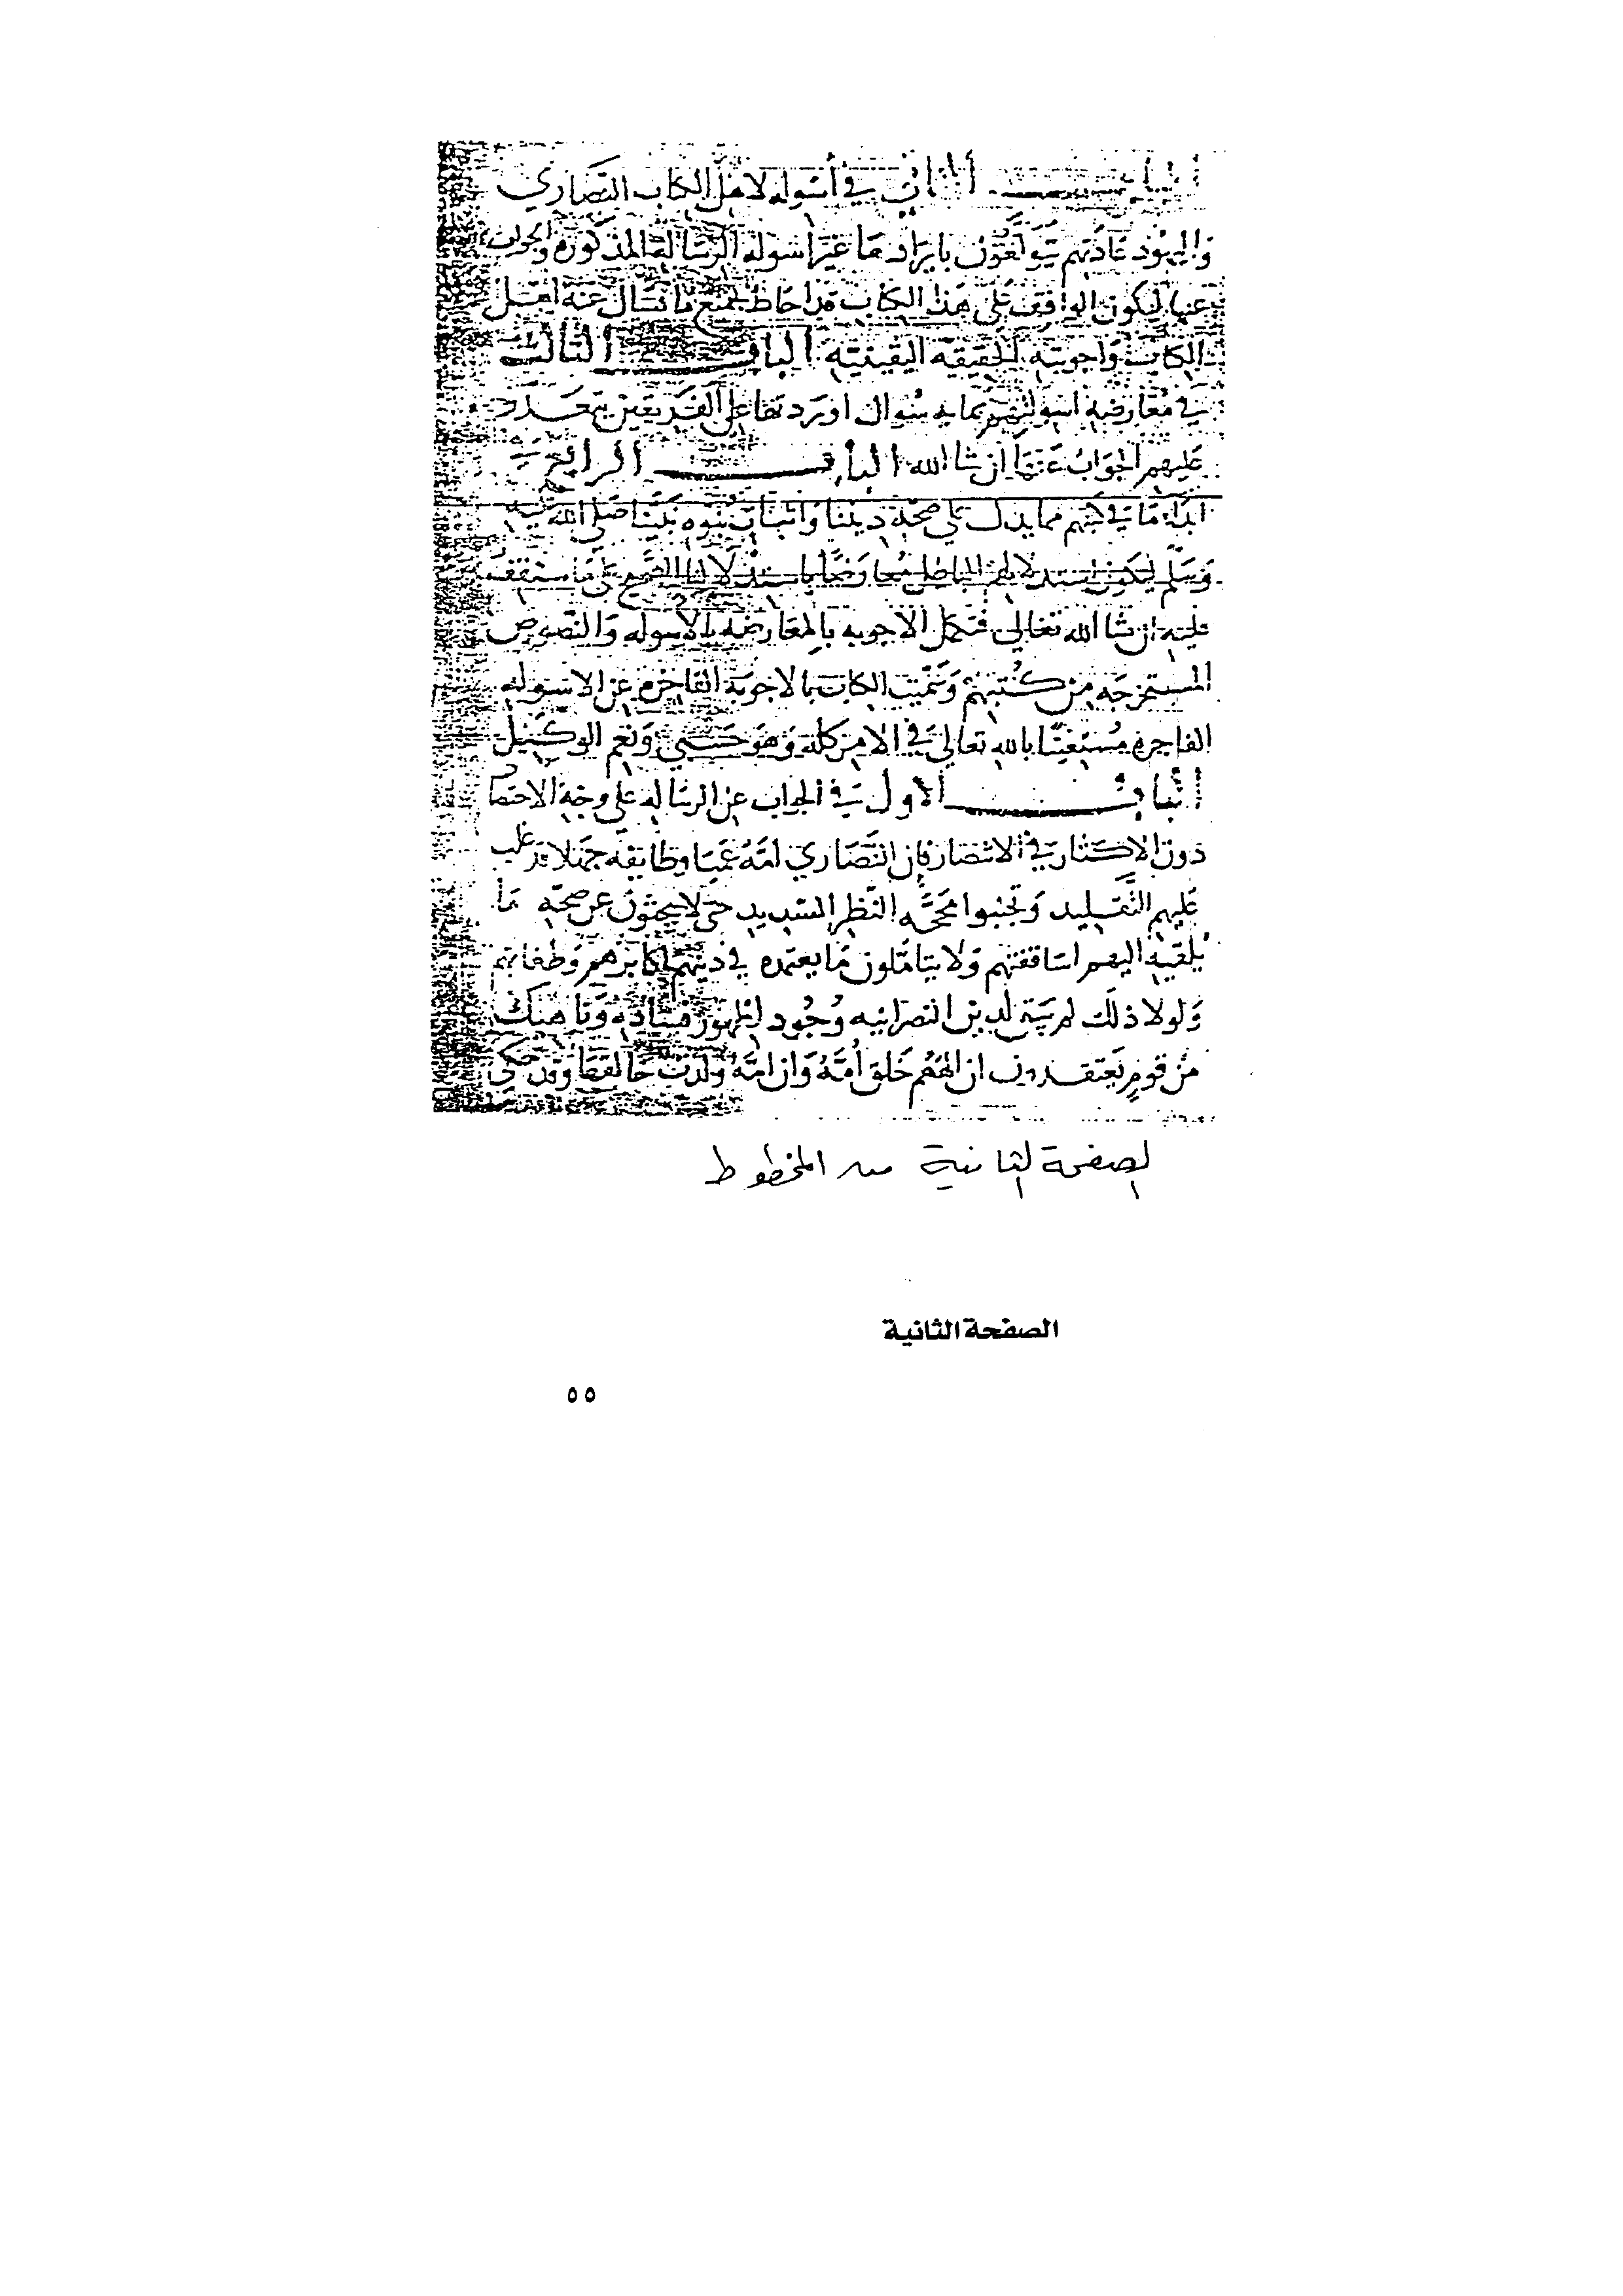 البــــاب الثاني في أسوله لاهل الكتاب النصاري
واليهود عادتهم يتولعون بايرادها غير أسوله الرسالة المذكوره والجواب
عنها ليكون الواقف على هذا الكتاب قد احاط بجميع ما يسال عنه اهل
الكتاب واجوبته الحقيقه اليقينيه البـــاب الثالث
في معارضة اسولتهم بمايه سوال اوردتها على الفريقين يتعذر
عليهم الجواب عنها ان شا الله البـــاب الرابع في
ابداء ما في كتبهم مما يدل على صحة ديننا واثبات نبوه نبينا صلى الله عليه
وسلم ليكون استدلالهم الباطل معارضا باستدلالنا الصحيح على ما ستقف
عليه ان شا الله تعالى فتكمل الاجوبه بالمعارضه بالاسوله والنصوص
المستخرجه من كتبهم وسميت الكتاب بالاجوبة الفاخره عن الاسوله
الفاجرة مستعينا بالله تعالى في الامر كله وهو حسبي ونعم الوكيل
البـــاب الاول في الجواب عن الرساله على وجه الاختصار
دون الاكثار في الانتصار فان النصاري امة عميا وطايفه جهلا قد غلب
عليهم التقليد وتجنبوا محجة النظر السديد حتى لا يبحثون عن صحة ما
يلقيه اليهم اساقفتهم ولا يتاملون ما يعتمده في دينهم اكابرهم وطغاتهم
ولولا ذلك لم يبق لدين النصرانيه وجود لظهور فساده وناهيك
من قوم يعتقدون ان الههم خلق أمه وان امه ولدت خالقها وقد حكى
الصفحة الثانية من المخطوط
الصفحة الثانية
٥٥